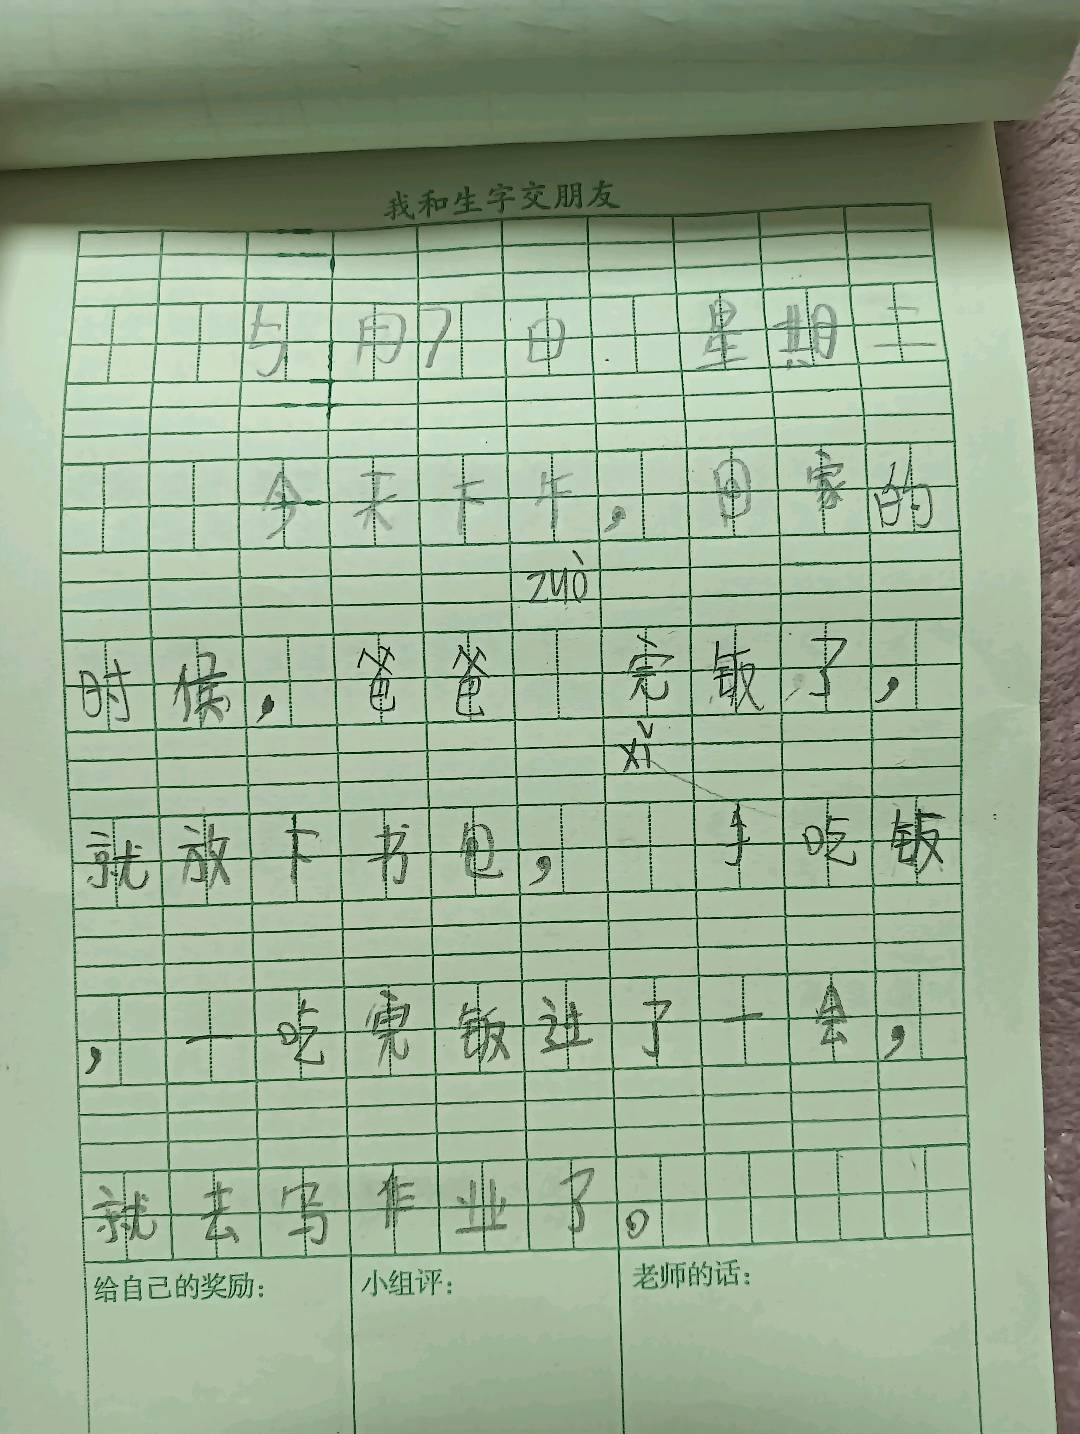 我和生字交朋友
5月7日 星期三
今天下午，回家的
zuò
时候，爸爸 完饭了，
xǐ
就放下书包， 手吃饭
，一吃完饭过了一会，
就去写作业了。
给自己的奖励： 小组评： 老师的话：